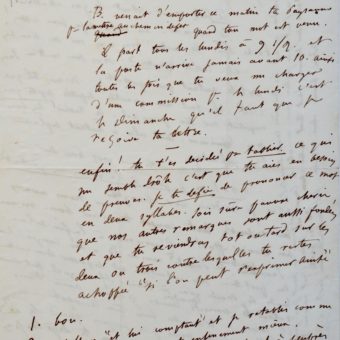 B. venait d'emporter ce matin tes paysages
pr la mettre au chemin de fer quand ton mot est venu.
Il part tous les lundis à 9 1/2. et
la poste n'arrive jamais avant 10. ainsi
toutes les fois que tu veux me charger
d'une commission pr le lundi c'est
le Dimanche qu'il faut que je
reçoive ta lettre.
enfin! te t'es décidé pr tablier. ce qui
me semble drôle c'est que tu aies eu besoin
de preuves. je te défie de prononcer ce mot
en deux syllabes. Sois sûre pauvre chérie
que nos autres remarques sont aussi fondées
et que tu reviendras tôt ou tard sur les
deux ou trois contre lesquelles tu restes
achoppée si l'on peut s'exprimer ainsi
1. bon.
et lui comptant et je rétablis comme